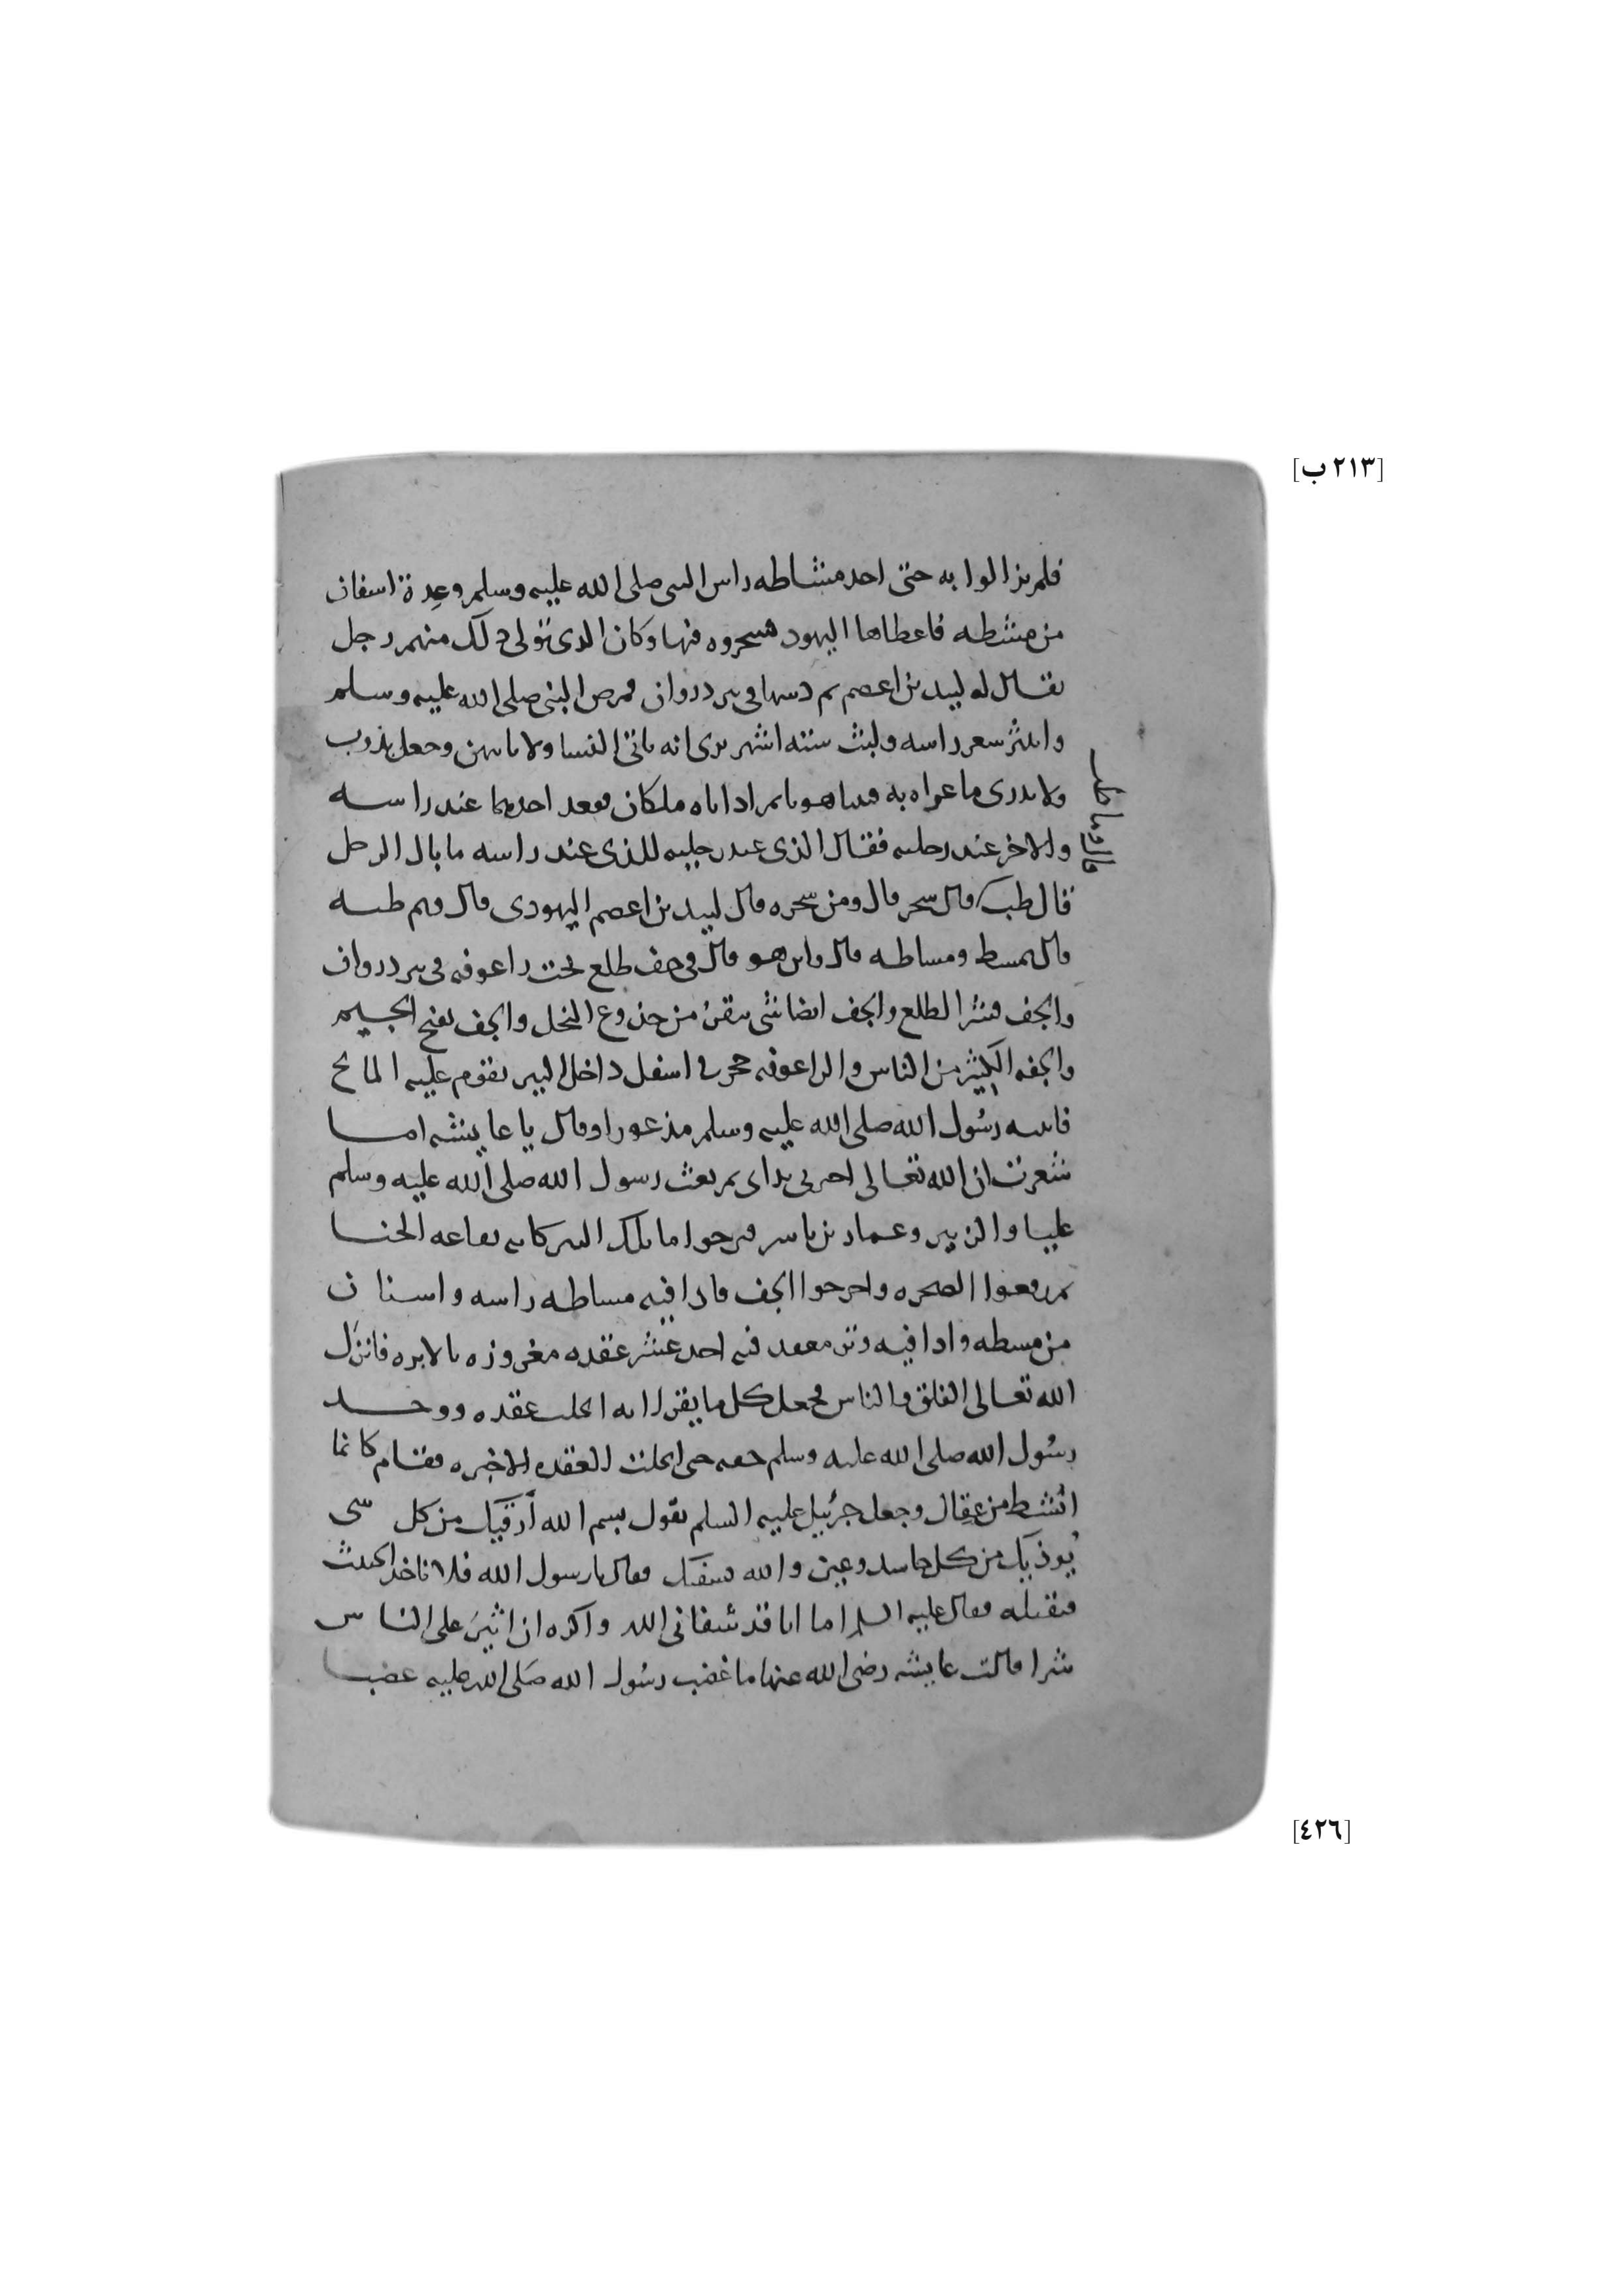 [٢١٣ ب]
فلم يزالوا به حتى اخذ مشاطه راس النبي صلى الله عليه وسلم وعدة اسنان
من مشطه فاعطاها اليهود فسحروه فيها وكان الذى تولى ذلك منهم رجل
يقال له لبيد بن اعصم ثم دسها في بير ذروان فمرض النبي صلى الله عليه وسلم
وانتثر شعر راسه ولبث ستة اشهر يرى انه ياتى النسا ولا ياتيهن وجعل يذوب
ولا يدرى ما عراه به فبينا هو نايم اذ اتاه ملكان فقعد احدهما عند راسه
والاخر عند رجليه فقال الذى عند رجليه للذى عند راسه ما بال الرجل
قال طب قال سحر قال ومن سحره قال لبيد بن اعصم اليهودى قال وبم طبه
قال بمشط ومشاطه قال واين هو قال في جف طلع تحت راعوفه في بير ذروان
والجف قشر الطلع والجف ايضا شى ينقر من جذوع النخل والجف بفتح الجيم
والجفه الكثير من الناس والراعوفه حجر في اسفل داخل البير يقوم عليه المائح
فانتبه رسول الله صلى الله عليه وسلم مذعورا وقال يا عايشه اما
شعرت ان الله تعالى اخبرنى بداى ثم بعث رسول الله صلى الله عليه وسلم
عليا والزبير وعمار بن ياسر فنزحوا ما تلك البير كانه نقاعه الحنا
ثم رفعوا الصخره واخرجوا الجف فاذا فيه مشاطه راسه واسنان
من مشطه واذا فيه وتر معقد فيه احد عشر عقده مغروزه بالابره فانزل
الله تعالى الفلق والناس فجعل كل ما يقرا ايه انحلت عقده ووجد
رسول الله صلى الله عليه وسلم خفه حتى انحلت العقده الاخيره فقام كانما
انشط من عقال وجعل جبرئيل عليه السلم يقول بسم الله أرقيك من كل شى
يوذيك من كل حاسد وعين والله يشفيك فقال يا رسول الله فلا ناخذ الخبيث
فنقتله فقال عليه السلم اما انا قد شفانى الله واكره ان اثير على الناس
شرا قالت عايشه رضى الله عنها ما غضب رسول الله صلى الله عليه غضبا
[٤٢٦]